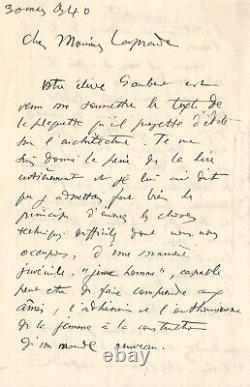 30 mars 1940
Cher Monsieur Laprade
Votre élève Goubert est
venu me soumettre le texte de
la plaquette qu'il projette d'éditer
sur l'architecture. Je me
suis donné la peine de la lire
entièrement et je lui ai dit
que j'admettais fort bien le
principe d'aborder les choses
techniques difficiles dont nous nous
occupons, d'une manière
juvénile, "jeune homme", capable
peut être de faire comprendre aux
aînés, l'adhésion et l'enthousiasme
de la femme à la construction
d'un monde nouveau.